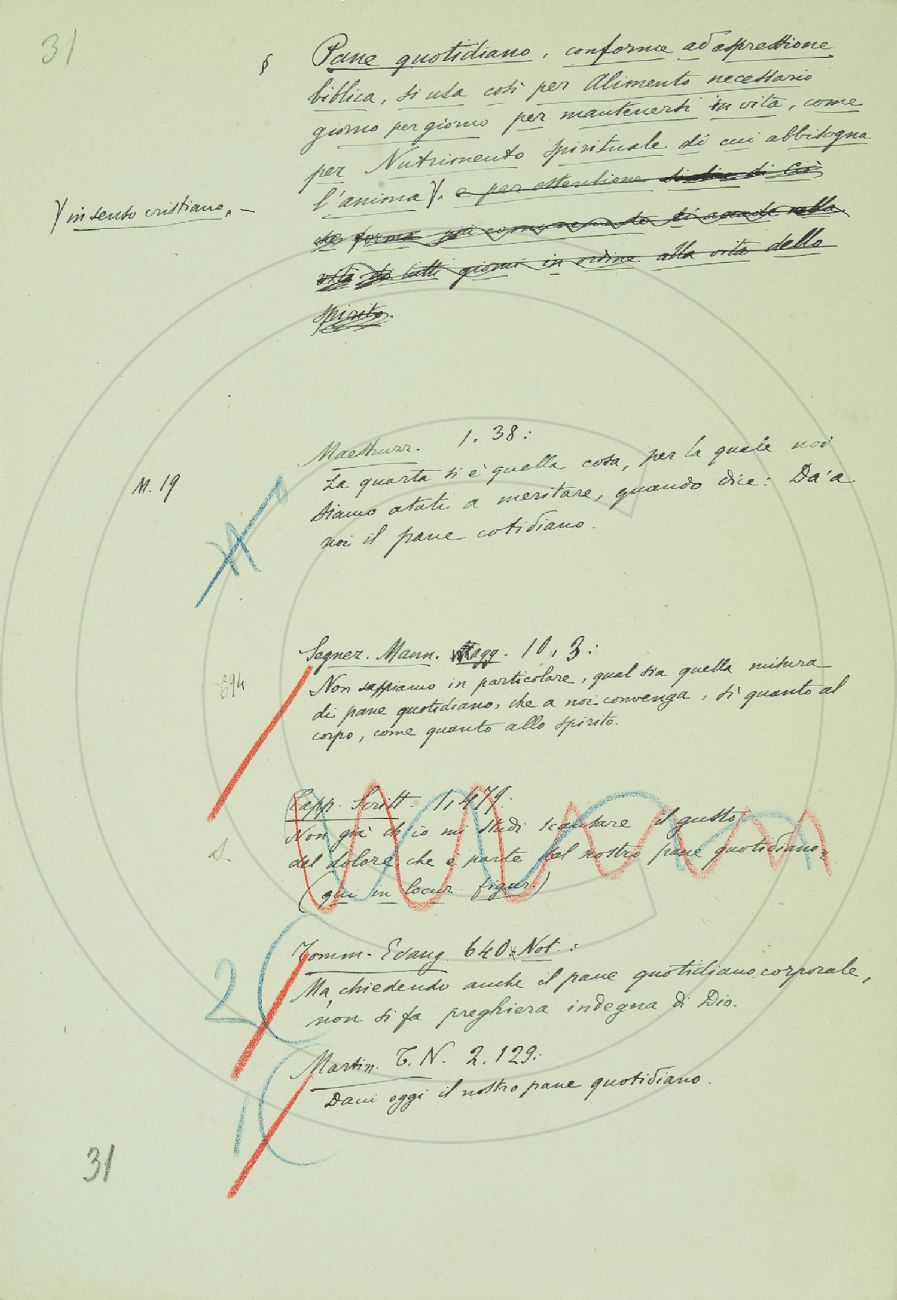 31
§ Pane quotidiano, conforme ad espressione
biblica, si usa così per Alimento necessario
giorno per giorno per mantenersi in vita, come
per Nutrimento spirituale di cui abbisogna
l'anima . e per estensione di ciò
in senso cristiano. –
che forma
tutti giorni in ordine alla vita dello
spirito.
Maestruzz. 1. 38:
M. 19
La quarta si è quella cosa, per la quale noi
siamo atati a meritare, quando dice: Da' a
noi il pane cotidiano.
Segner. Mann. Magg. 10, 3:
694
Non sappiamo in particolare, qual sia quella misura
di pane quotidiano, che a noi convenga, sì quanto al
corpo, come quanto allo spirito.
Capp. Scritt. 1, 479:
Non già ch'io mi studi scansare il gusto
del dolore, che è parte del nostro pane quotidiano.
(qui in locuz. figur.)
Tomm. Evang. 640. Not.:
2
Ma, chiedendo anche il pane quotidiano corporale,
non si fa preghiera indegna di Dio.
Martin. T. N. 2. 129:
1
Dacci oggi il nostro pane quotidiano.
31